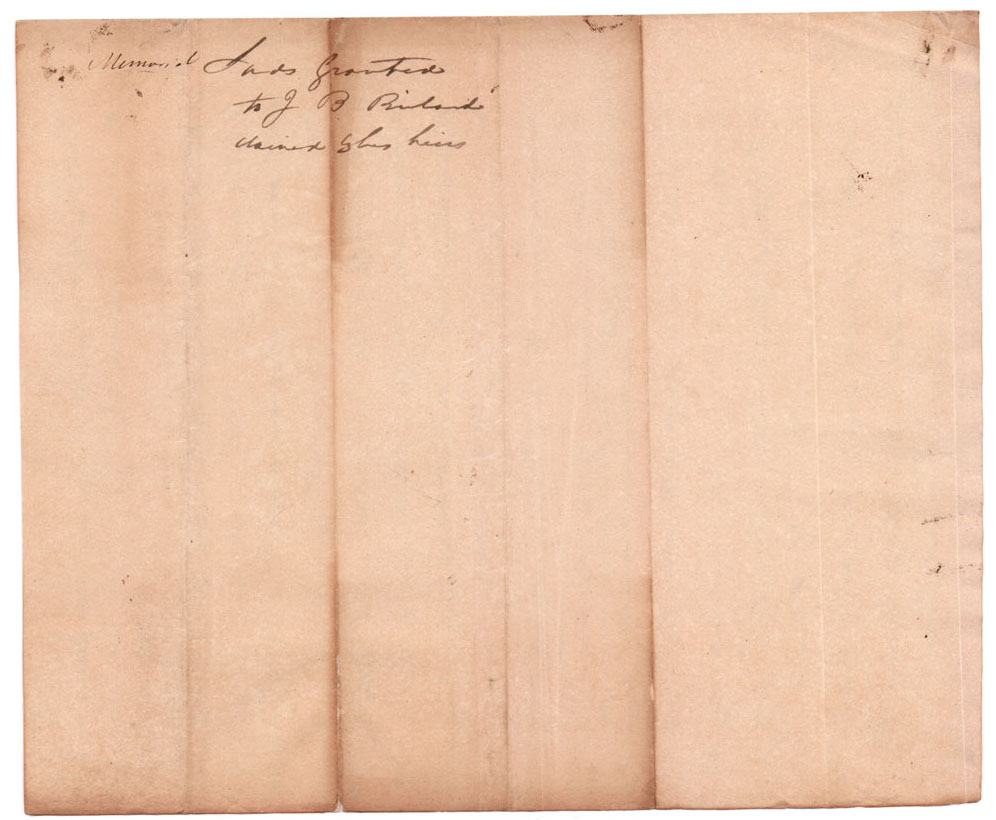 Memorial Lands Granted
to J B
claimed by his heirs